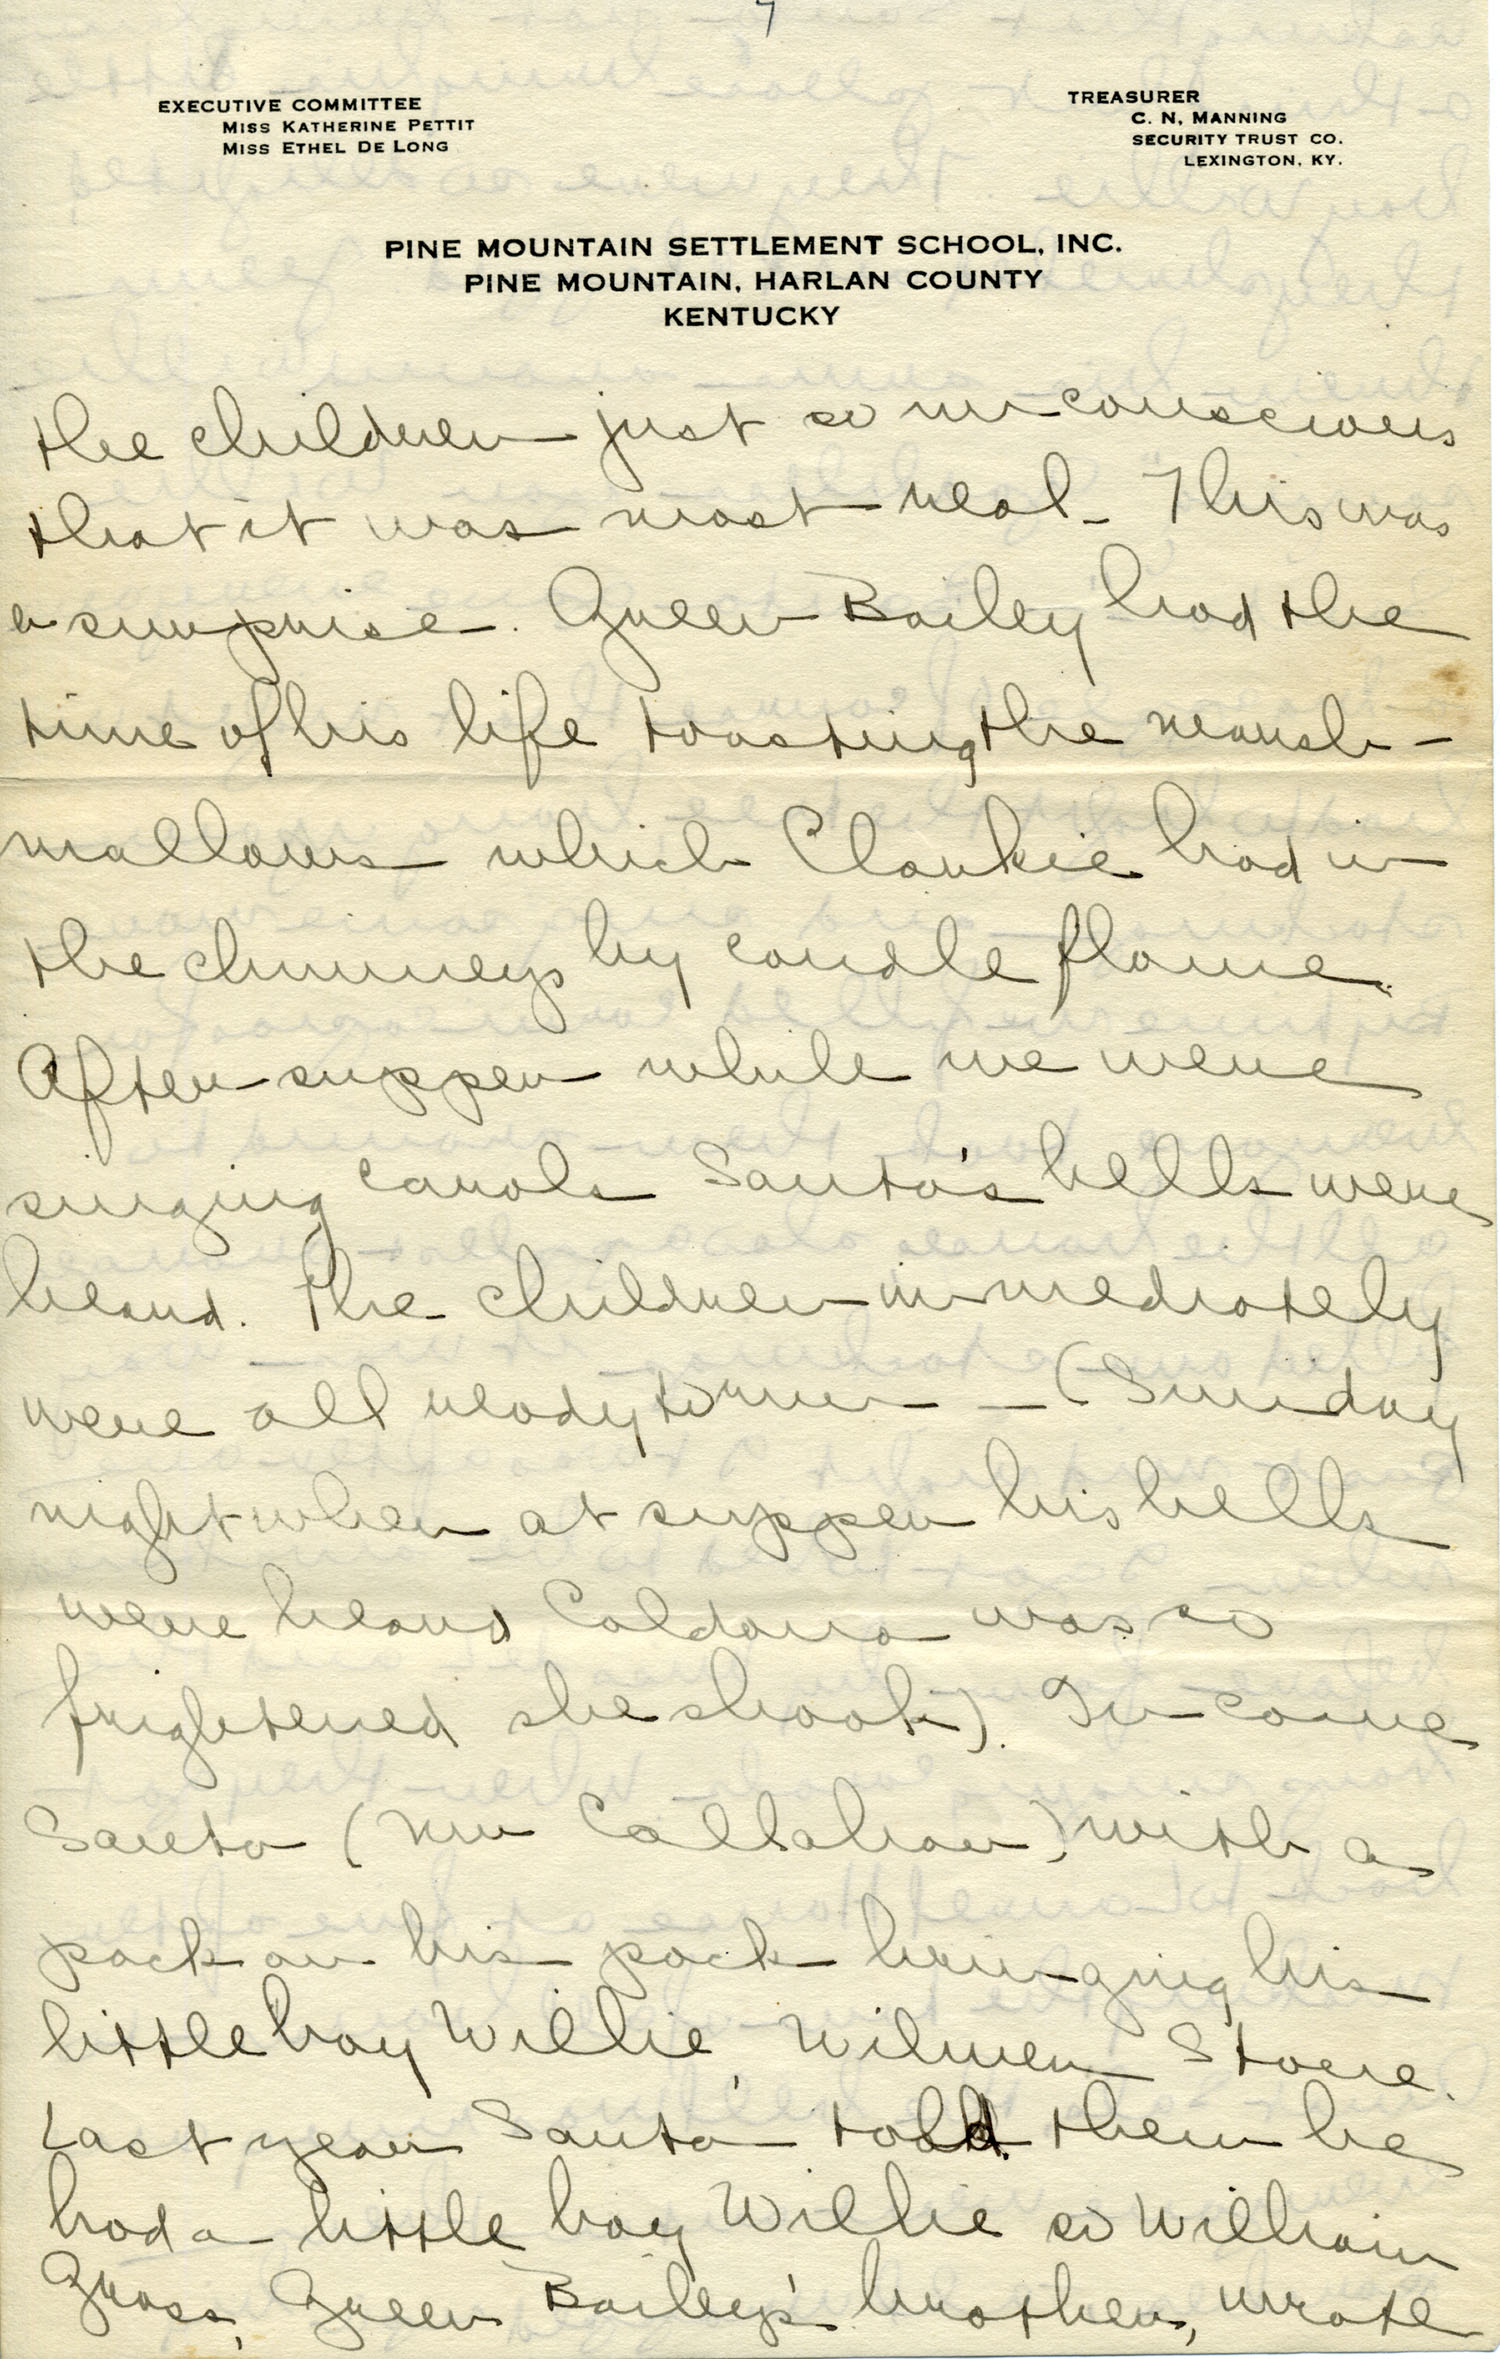 7
EXECUTIVE COMMITTEE
MISS KATHERINE PETTIT
MISS ETHEL DE LONG
TREASURER
C. N. MANNING
SECURITY TRUST CO.
LEXINGTON, KY.
PINE MOUNTAIN SETTLEMENT SCHOOL, INC.
PINE MOUNTAIN, HARLAN COUNTY
KENTUCKY
the children just so unconscious
that it was most real. This was
a surprise. Green Bailey had the
time of his life toasting the marsh-
mallows which Clarkie had in
the chimneys by candle flame.
After supper while we were
singing carols Santa's bells were
heard. The children immediately
were all ready to run — (Sunday
night when at supper his bells
were heard Caldona was so
frightened she shook). In came
Santa (Mr Callahan) with a
pack on his pack bringing his
little boy Willie, Wilmer Stone.
Last year Santa told them he
had a little boy Willie so William
Gross, Green Bailey's brother, wrote